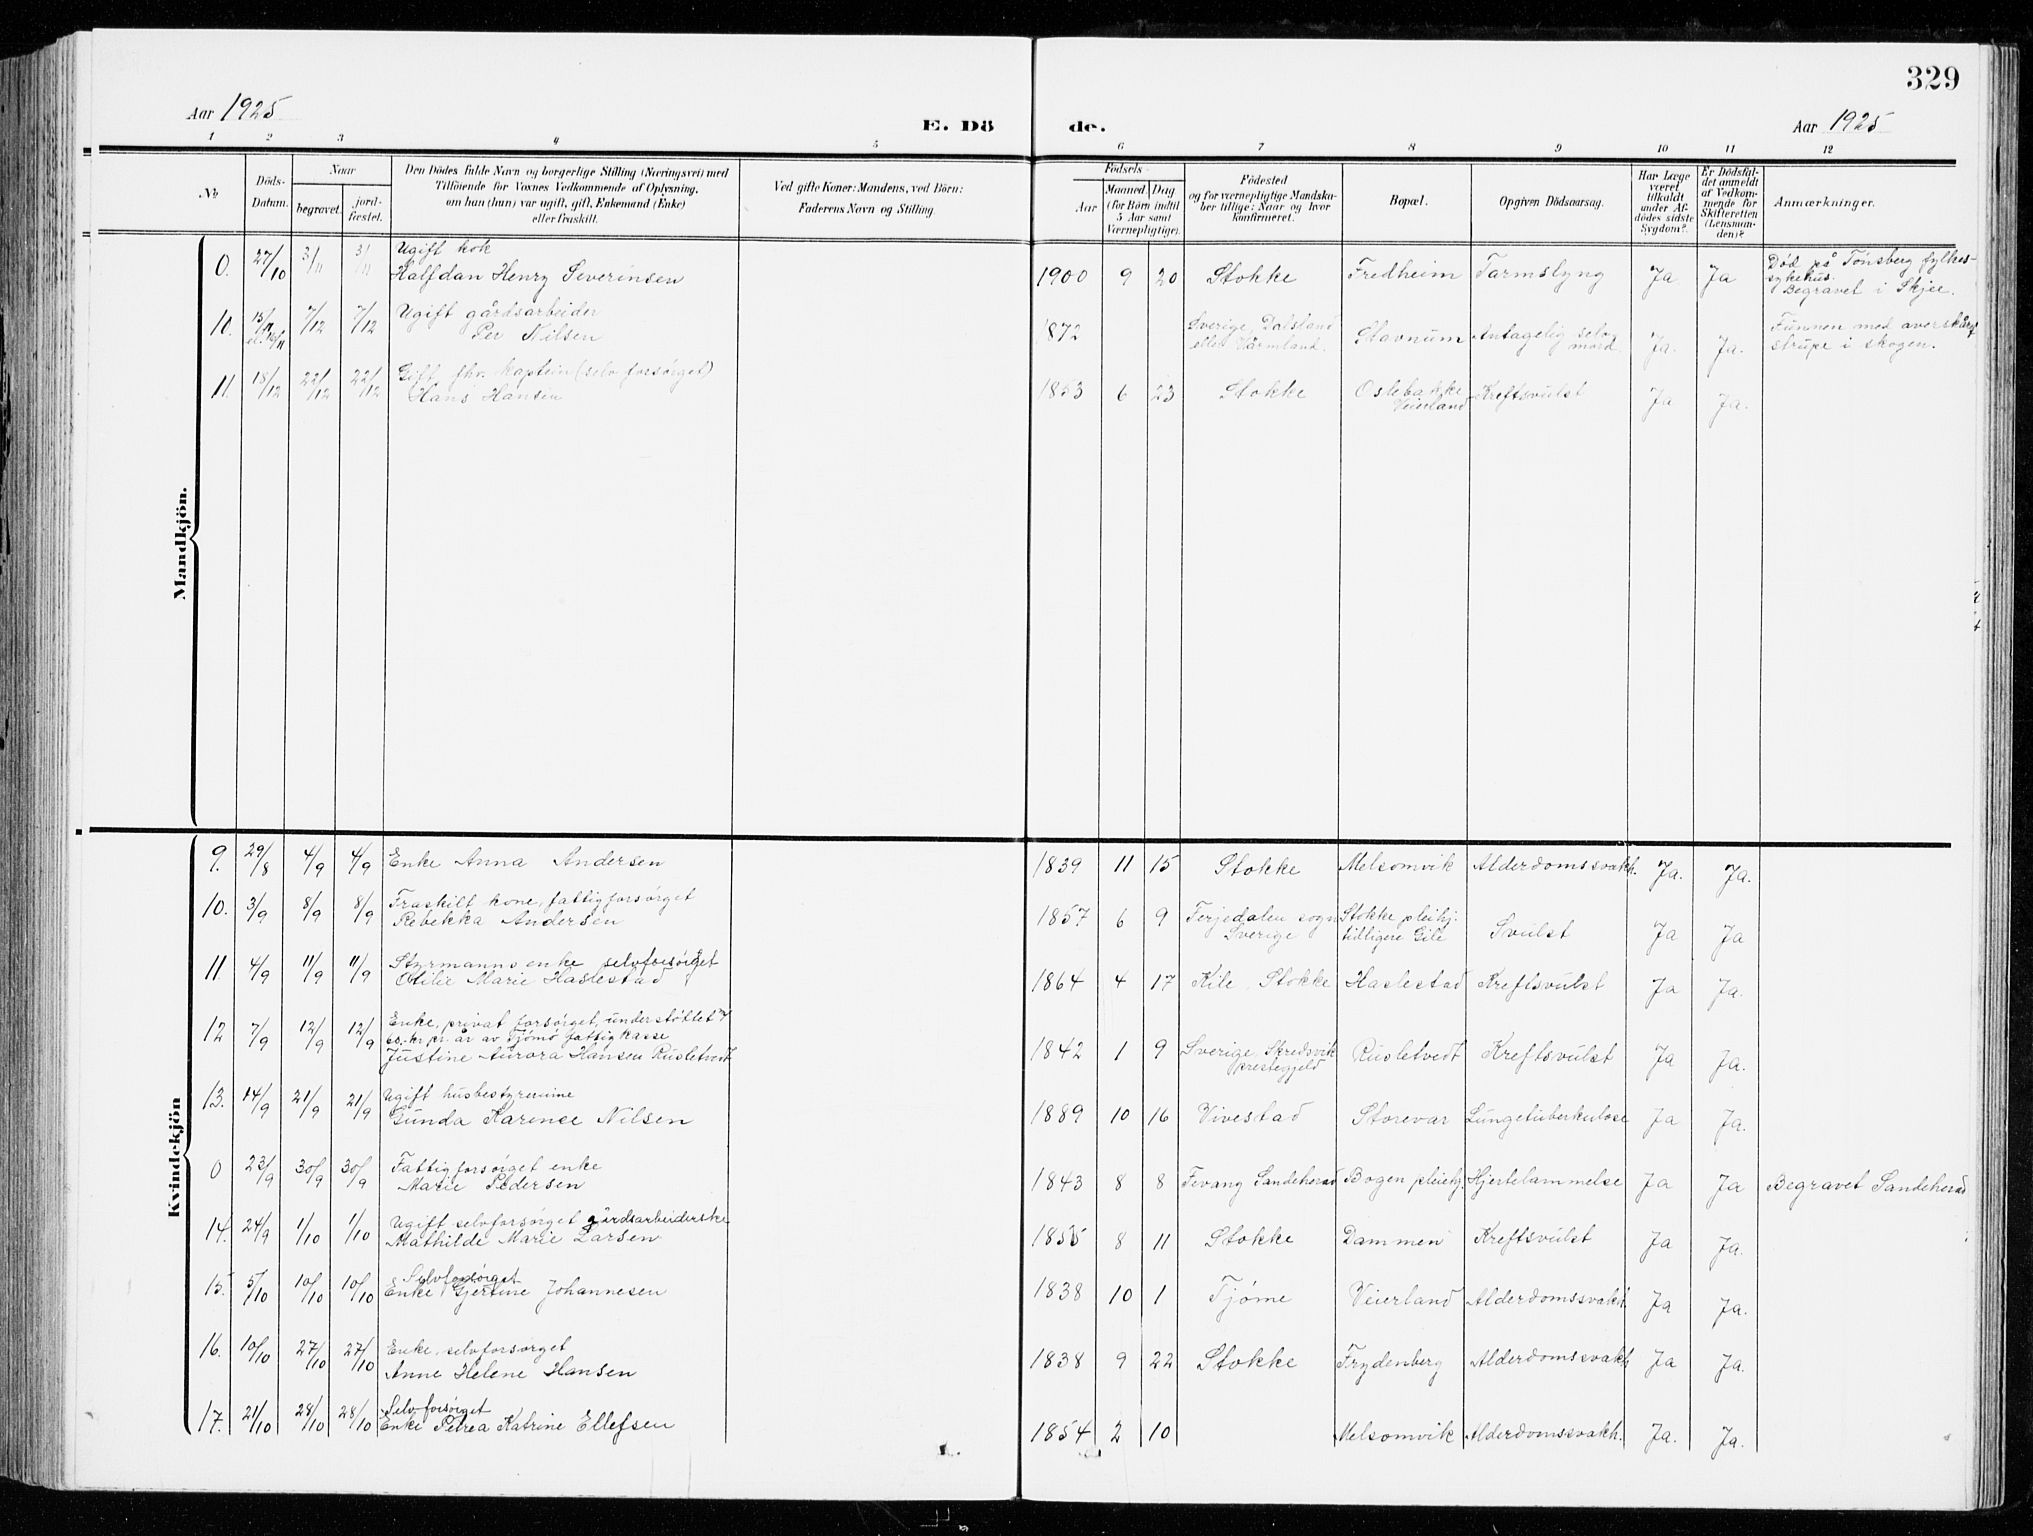 329
Aar 1925
E. Dö
de.
Aar 1925
1 2 3 4 5 6 7 8 9 10 11 12
No.
Döds-Datum.
Naar
begravet.
jord-fæstet.
Den Dödes fulde Navn og borgerlige Stilling (Næringsvei) med
Tilföiende for Voxnes Vedkommende af Oplysning,
om han (hun) var ugift, gift, Enkemand (Enke)
eller fraskilt.
Ved gifte Koner: Mandens, ved Börn:
Faderens Navn og Stilling.
Födsels-
Aar
Maaned. Dag
(for Börn indtil
5 Aar samt
Værnepligtige).
Födested
og for værnepligtige Mandska-
ber tillige: Naar og hvor
konfirmeret.
Bopæl.
Opgiven Dödsaarsag.
Har Læge
været
tilkaldt
under Af-
dödes sidste
Sygdom?
Er Dödsfal-
det anmeldt
af Vedkom-
mende for
Skifteretten
(Lensman-
den)?
Anmærkninger.
Mandkjön.
0. 27/10 3/11 3/11 Ugift kok
Halfdan Henry Severinsen
1900 9 20 Stokke Fredheim Tarmslyng Ja Ja
Død på Tønsberg fylkes-
sykehus.
Begravet i Skjee.
10. 15/11 el. 16/11 7/12 7/12 Ugift gårdsarbeider
Per Nilsen
1872 Sverige, Dalsland
eller Värmland. Stavnum Antagelig selv
mord. Ja. Ja.
Funnen med overskåret
strupe i skogen.
11. 18/12 22/12 22/12 Gift fhv. kaptein (selvforsørget)
Hans Hansen
1853 6 23 Stokke Ostebakke
Veierland Kreftsvulst Ja Ja.
Kvindekjön
9. 29/8 4/9 4/9 Enke Anna Andersen
1839 11 15 Stokke Melsomvik Alderdomssvakh. Ja. Ja.
10. 3/9 8/9 8/9 Fraskilt kone, fattigforsørget
Rebekka Andersen
1857 6 9 Terjedalen sogn
Sverige Stokke pleihj.
tidligere Gile Svulst Ja Ja
11. 4/9 11/9 11/9 Styrmannsenke selvforsørget
Otilie Marie Haslestad
1864 4 17 Kile, Stokke Haslestad Kreftsvulst Ja Ja.
12 7/9 12/9 12/9 Enke, privat forsørget, understøttet
60.- kr pr. år av Tjømø fattigkasse
Justine Aurora Hansen Rusletvedt
1842 1 9 Sverige, Skredsvik
prestegjeld Rusletvedt Kreftsvulst Ja Ja.
13. 14/9 21/9 21/9 Ugift husbestyrerinne
Gunda Karence Nilsen
1889 10 16 Vivestad Storevar Lungetuberkulose Ja Ja.
0 23/9 30/9 30/9 Fattigforsørget enke
Marie Pedersen
1843 8 8 Fevang Sandeherad Bogen pleiehj. Hjertelammelse Ja Ja Begravet Sandeherad
14. 24/9 1/10 1/10 Ugift selvforsørget gårdsarbeiderske
Mathilde Marie Larsen
1855 8 11 Stokke Dammen Kreftsvulst Ja Ja.
15. 5/10 10/10 10/10 Selvforsørget
Enke Gjertine Johannesen
1838 10 1 Tjøme Veierland Alderdomssvakh. Ja Ja.
16. 10/10 27/10 27/10 Enke, selvforsørget
Anne Helene Hansen
1838 9 22 Stokke Frydenberg Alderdomssvakh Ja Ja.
17. 21/10 28/10 28/10 Selvforsørget
Enke Petrea Katrine Ellefsen
1854 2 10 Melsomvik Alderdomssvakh. Ja. Ja.